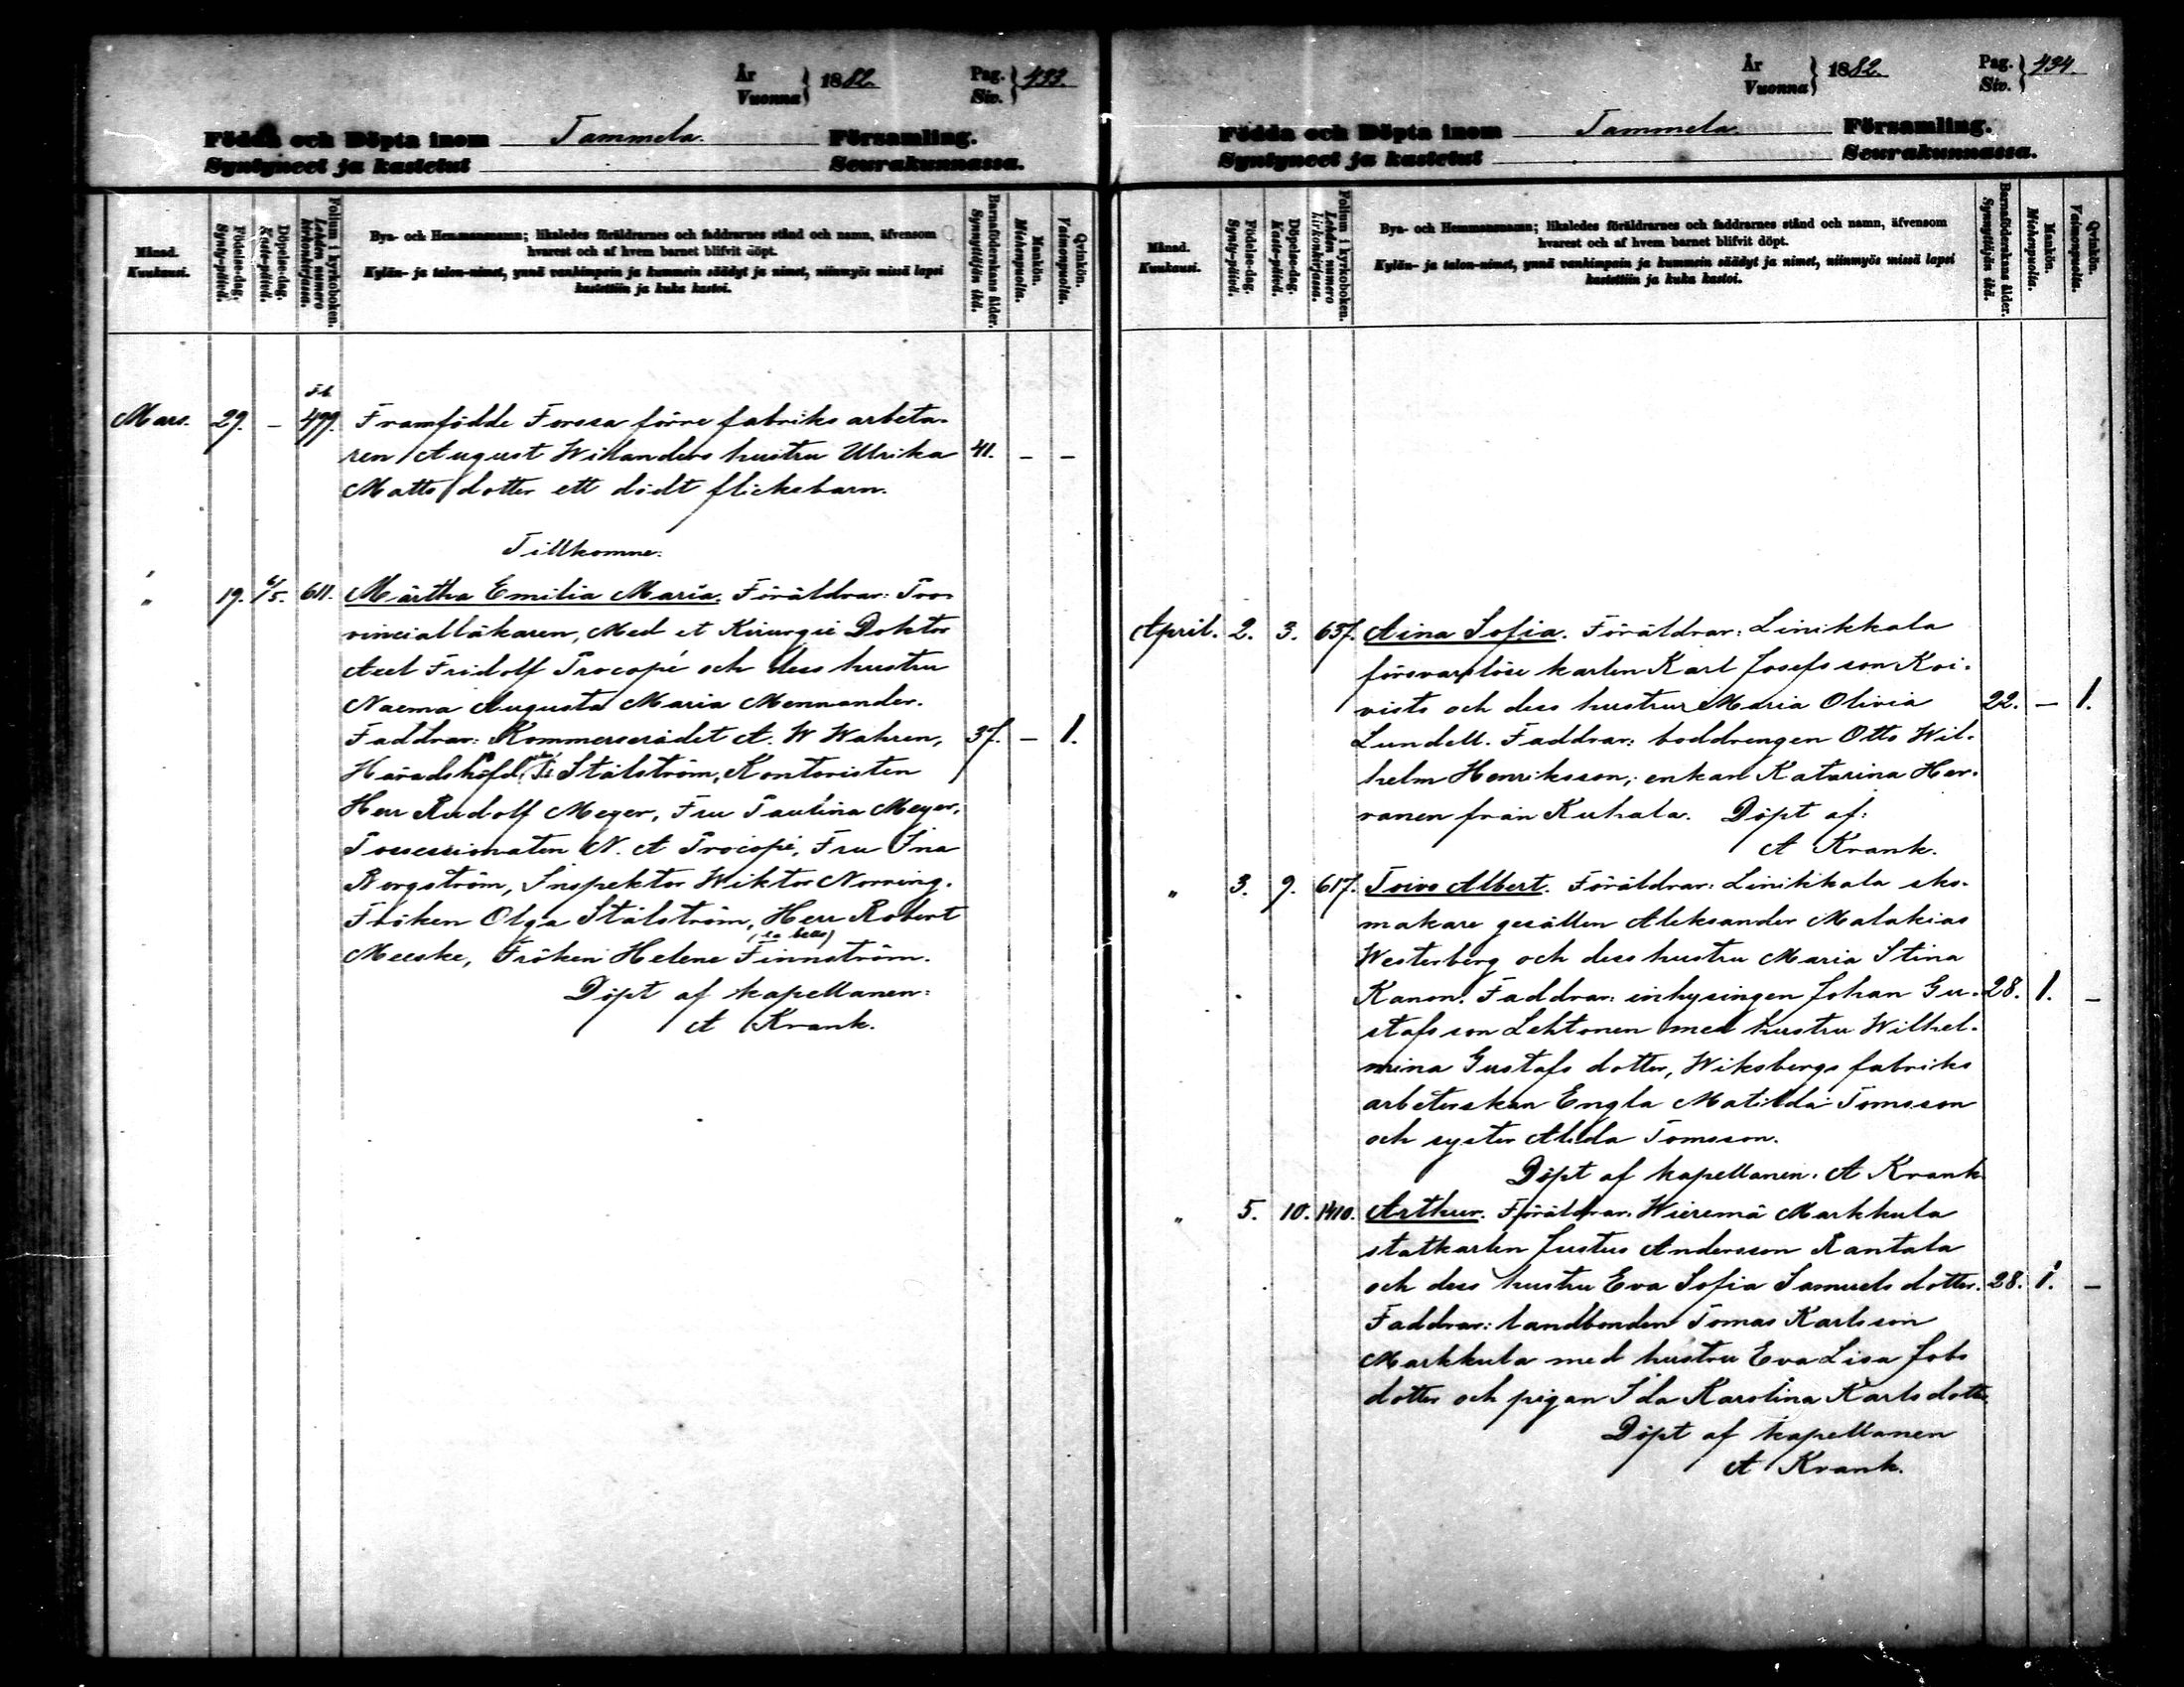 År
Vuonna } 1882. Pag.
Siv. } 493.
Födda och Döpta inom Tammela. Församling.
Syntyneet ja kastetut Seurakunnassa.
Månad.
Kuukausi.
Födelse-dag.
Synty-päivä.
Döpelse-dag.
Kaste-päivä.
Folium i kyrkoboken.
Lehden numero
kirkonkirjassa.
Bya- och Hemmansnamn; likaledes föräldrarnes och faddrarnes stånd och namn, äfvensom
hvarest och af hvem barnet blifvit döpt.
Kylän- ja talon-nimet, ynnä vanhimpain ja kummein säädyt ja nimet, niinmyös missä lapsi
kastettiin ja kuka kastoi.
Barnaföderskans ålder.
Synnyttäjän ikä.
Mankön.
Miehenpuolia.
Qvinkön.
Vaimonpuolia.
Mars. 29. – 479. Framfödde Forssa förre fabriks arbeta-
ren August Willanders hustru Ulrika 41. – –
Matts dotter ett dödt flickebarn.
Tillkomne.
" 19. 6/5. 611. Märtha Emilia Maria. Föräldrar: Pro-
vincialläkaren, Med et Kirurgie Doktor
Axel Fridolf Procopé och dess hustru
Naema Augusta Maria Mennander.
Faddrar: Kommerserådet A. W Wahren, 37. – 1.
Häradshöfd. Stålström, Kontoristen
Herr Rudolf Meyer, Fru Paulina Meyer,
Possessionaten N. A Procopé, Fru Ina
Bergström, Inspektor Wiktor Norring.
Fröken Olga Stålström, Herr Robert
Meeske, Fröken Helene Finnström.
Döpt af kapellanen:
A Krank.
År
Vuonna } 1882. Pag.
Siv. } 494.
Födda och Döpta inom Tammela. Församling.
Syntyneet ja kastetut Seurakunnassa.
Månad.
Kuukausi.
Födelse-dag.
Synty-päivä.
Döpelse-dag.
Kaste-päivä.
Folium i kyrkoboken.
Lehden numero
kirkonkirjassa.
Bya- och Hemmansnamn; likaledes föräldrarnes och faddrarnes stånd och namn, äfvensom
hvarest och af hvem barnet blifvit döpt.
Kylän- ja talon-nimet, ynnä vanhimpain ja kummein säädyt ja nimet, niinmyös missä lapsi
kastettiin ja kuka kastoi.
Barnaföderskans ålder.
Synnyttäjän ikä.
Mankön.
Miehenpuolia.
Qvinkön.
Vaimonpuolia.
April. 2. 3. 637. Aina Sofia. Föräldrar: Linikkala
försvarslöse karlen Karl Josefsson Koi-
visto och dess hustru Maria Olivia 22. – 1.
Lundell. Faddrar: boddrengen Otto Wil-
helm Henriksson, enkan Katarina Her-
ranen från Kuhala. Döpt af:
A Krank.
" 3. 9. 617. Toivo Albert. Föräldrar: Linikkala sko-
makare gesällen Aleksander Malakias
Westerberg och dess hustru Maria Stina
Kanon. Faddrar: inhysingen Johan Gu- 28. 1. –
stafsson Lehtonen med hustru Wilhel-
mina Gustafs dotter, Wiksbergs fabriks
arbeterskan Engla Matilda Tomsson
och syster Alida Tomsson.
Döpt af kapellanen. A Krank
" 5. 10. 1410. Arthur. Föräldrar. Wieremä Markkula
statkarlen Justus Andersson Rantala
och dess hustru Eva Sofia Samuels dotter. 28. 1. –
Faddrar: landbonden Tomas Karlsson
Markkula med hustru Eva Lisa Jobs
dotter och pigan Ida Karolina Karls dotter
Döpt af kapellanen
A Krank.